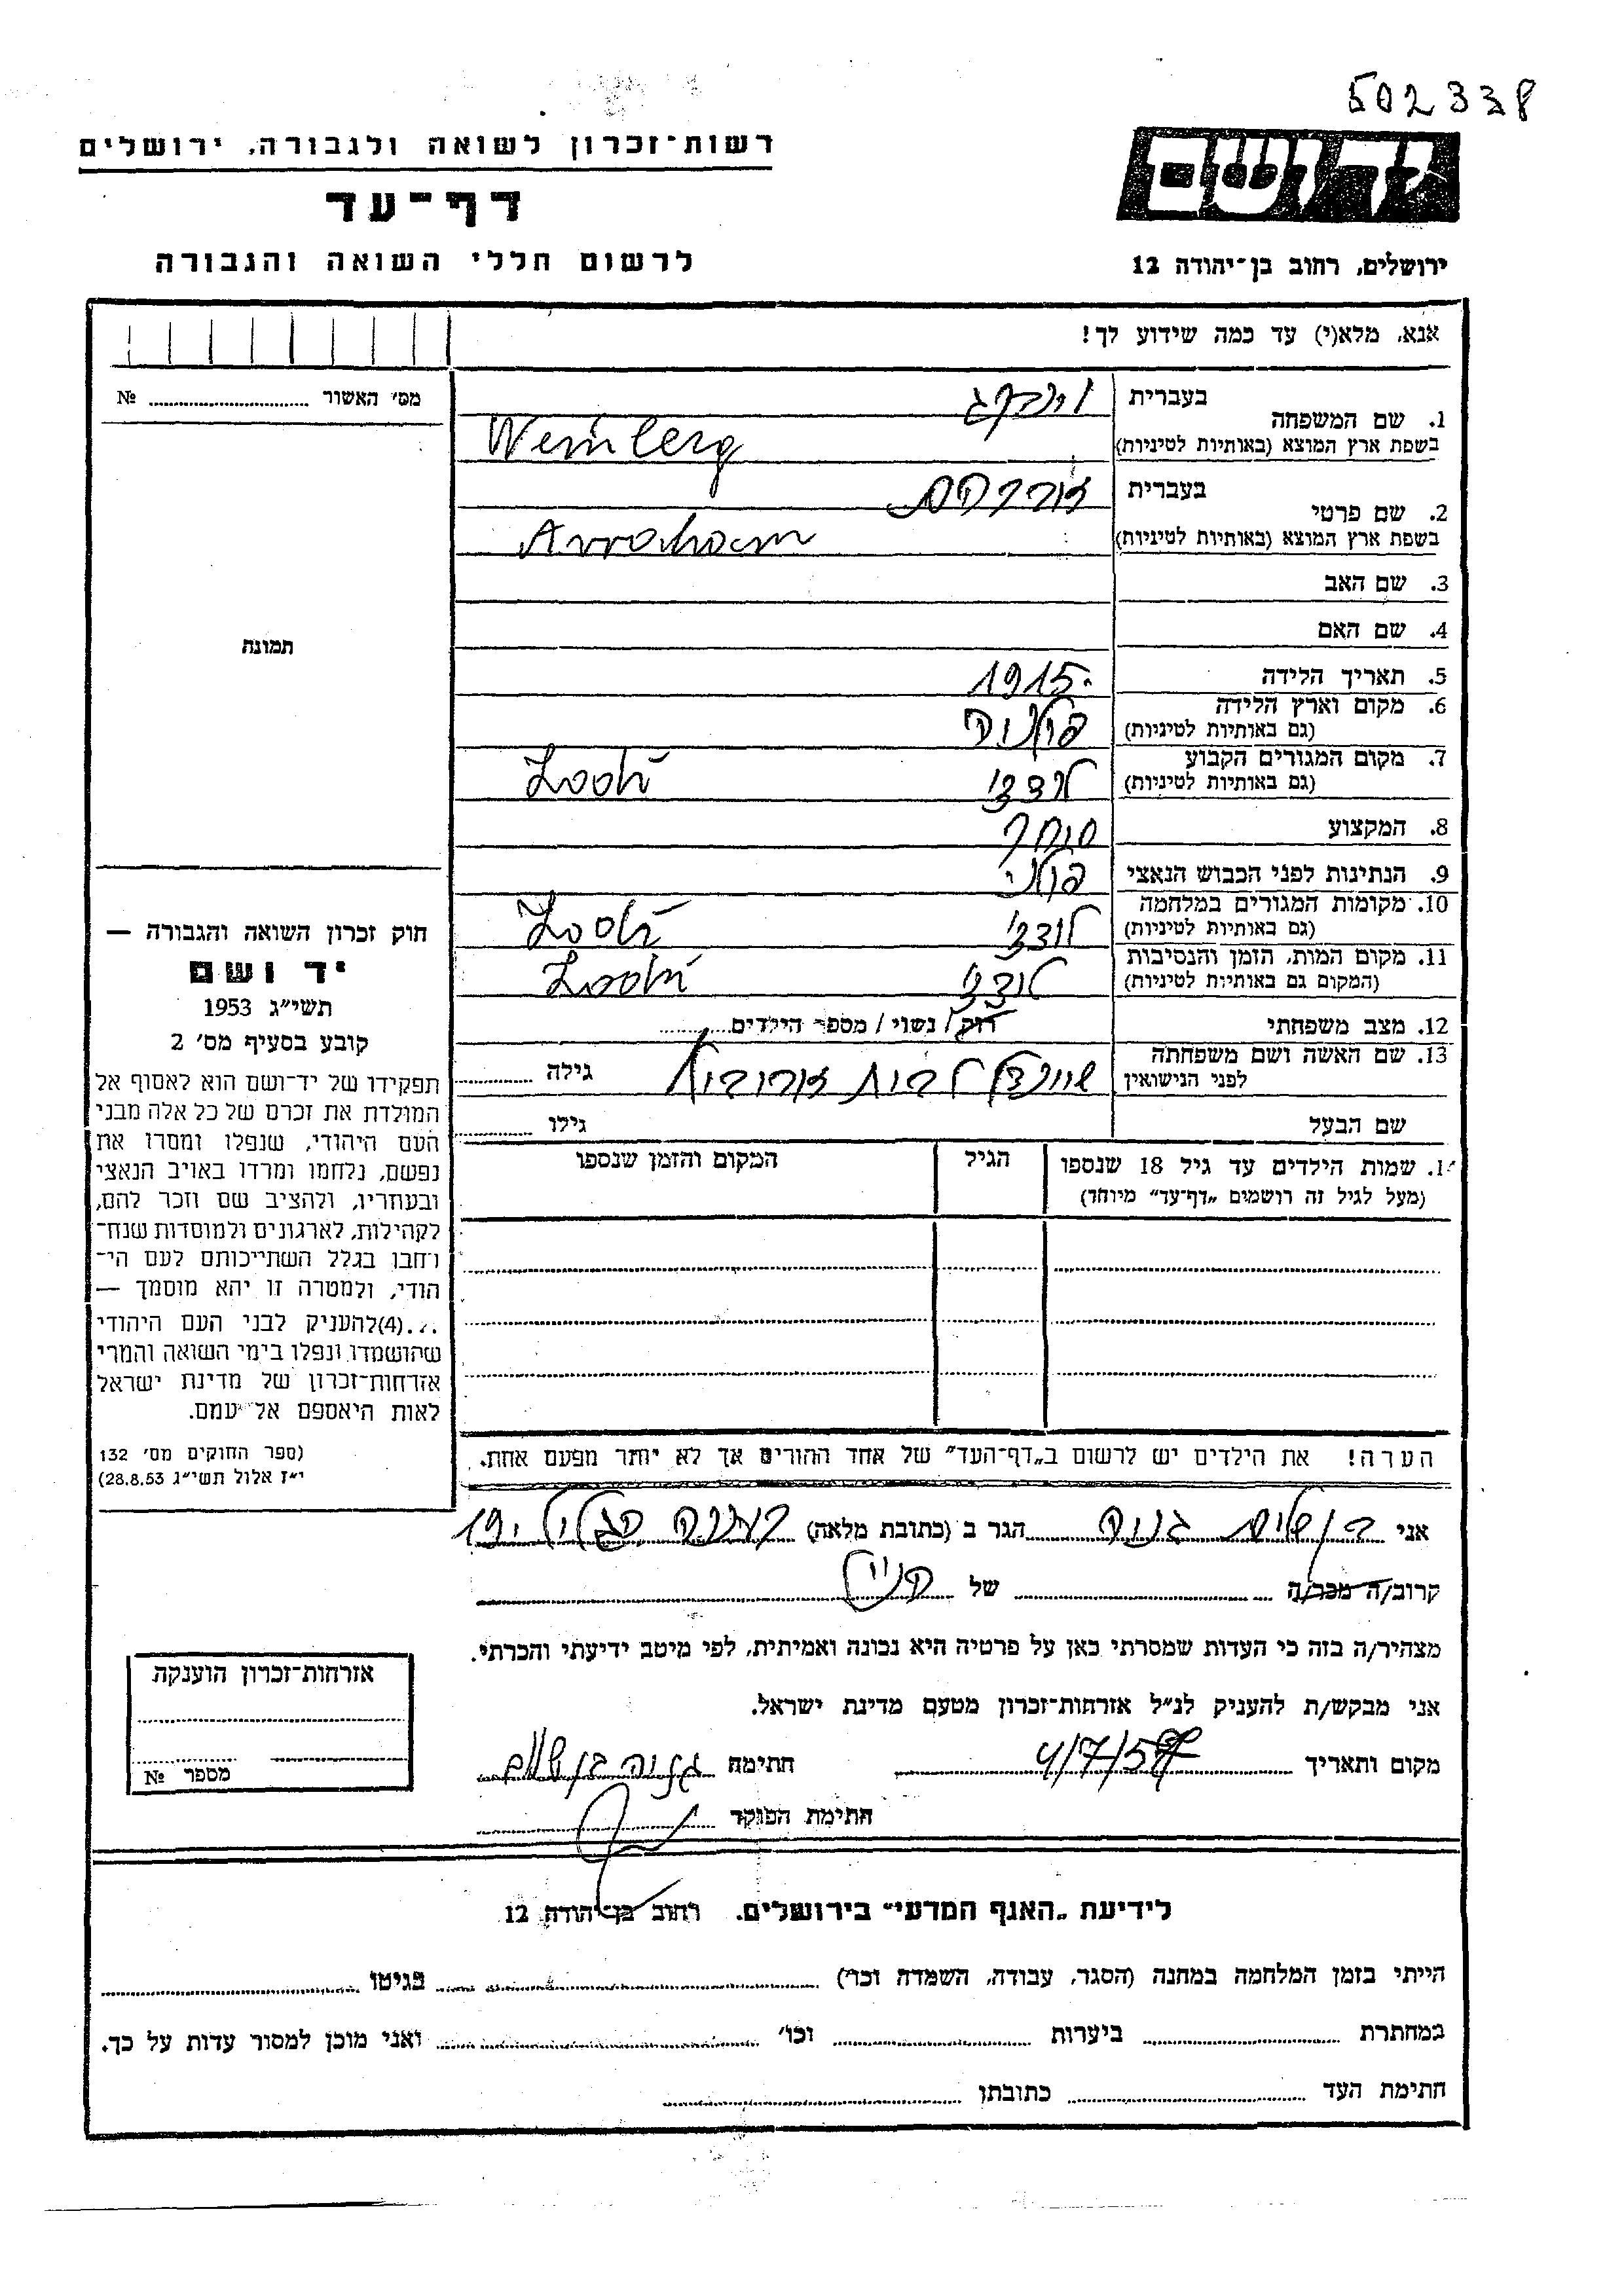 502338
יד ושם
ירושלים, רחוב בן־יהודה 12
רשות־זכרון לשואה ולגבורה, ירושלים
דף־עד
לרשום חללי השואה והגבורה
אנא, מלא(י) עד כמה שידוע לך!
מס׳ האשור № 
1. שם המשפחה בעברית
בשפת ארץ המוצא (באותיות לטיניות) Weinberg
2. שם פרטי בעברית אברהם
בשפת ארץ המוצא (באותיות לטיניות) Avraham
3. שם האב
4. שם האם
5. תאריך הלידה 1915
6. מקום וארץ הלידה פולניה
(גם באותיות לטיניות)
7. מקום המגורים הקבוע לודז׳ Lodź
(גם באותיות לטיניות)
8. המקצוע סוחר
9. הנתינות לפני הכבוש הנאצי פולני
10. מקומות המגורים במלחמה לודז׳ Lodź
(גם באותיות לטיניות)
11. מקום המות, הזמן והנסיבות לודז׳ Lodź
(המקום גם באותיות לטיניות)
12. מצב משפחתי רוק / נשוי / מספר הילדים
13. שם האשה ושם משפחתה
לפני הנישואין לבית גילה
שם הבעל גילו
1. שמות הילדים עד גיל 18 שנספו הגיל המקום והזמן שנספו
(מעל לגיל זה רושמים „דף־עד״ מיוחד)
הערה! את הילדים יש לרשום ב„דף־העד״ של אחד ההורים אך לא יותר מפעם אחת.
תמונה
חוק זכרון השואה והגבורה —
יד ושם
תשי״ג 1953
קובע בסעיף מס׳ 2
תפקידו של יד־ושם הוא לאסוף אל
המולדת את זכרם של כל אלה מבני
העם היהודי, שנפלו ומסרו את
נפשם, נלחמו ומרדו באויב הנאצי
ובעוזריו, ולהציב שם וזכר להם,
לקהילות, לארגונים ולמוסדות שנח־
רחבו בגלל השתייכותם לעם הי־
הודי, ולמטרה זו יהא מוסמך —
(4) להעניק לבני העם היהודי
שהושמדו ונפלו בימי השואה והמרי
אזרחות־זכרון של מדינת ישראל
לאות היאספם אל עמם.
(ספר החוקים מס׳ 132
י״ז אלול תשי״ג 28.8.53)
אני בן שלום גניה הגר ב (כתובת מלאה)
קרוב/ה מכר/ה של
מצהיר/ה בזה כי העדות שמסרתי כאן על פרטיה היא נכונה ואמיתית, לפי מיטב ידיעתי והכרתי.
אני מבקש/ת להעניק לנ״ל אזרחות־זכרון מטעם מדינת ישראל.
מקום ותאריך 4/7/57 חתימה גניה בן שלום
חתימת הפוקד
אזרחות־זכרון הוענקה
מספר №
לידיעת „האגף המדעי״ בירושלים. רחוב בן־יהודה 12
הייתי בזמן המלחמה במחנה (הסגר, עבודה, השמדה וכו׳) בגיטו
במחתרת ביערות וכו׳ ואני מוכן למסור עדות על כך.
חתימת העד כתובתו